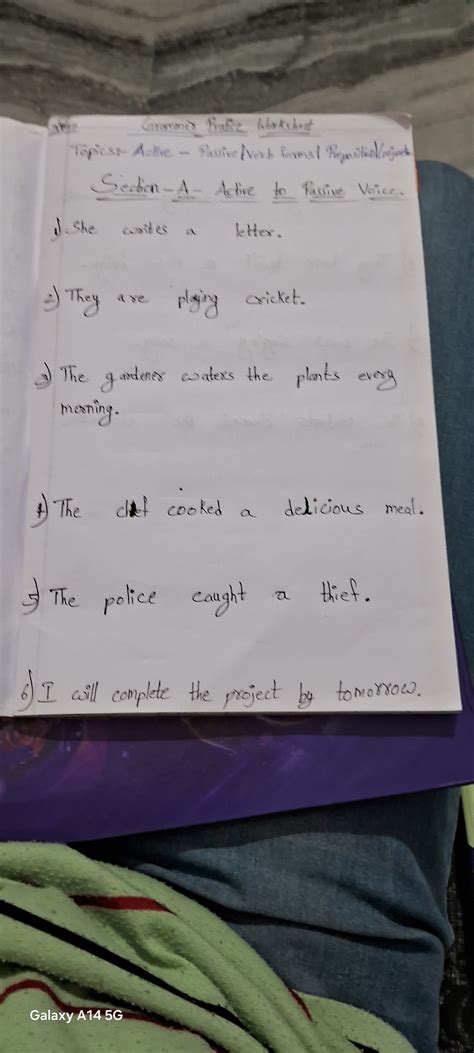 Grammar Pratice Worksheet
Topics:- Active - Passive/Verb forms/
Section-A- Active to Passive Voice.
1) She writes a letter.
2) They are playing cricket.
3) The gardener waters the plants every
morning.
4) The chef cooked a delicious meal.
5) The police caught a thief.
6) I will complete the project by tomorrow.
Galaxy A14 5G